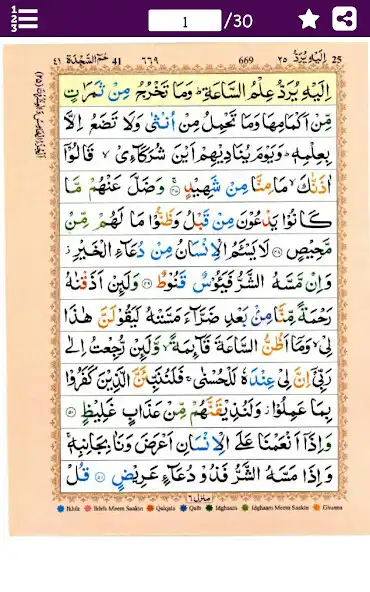 1 /30
حٰمٓ السَّجْدَة 41 ٤١ ٦٦٩ 669 اِلَيْهِ يُرَدُّ ٢٥ 25
اِلَيْهِ يُرَدُّ عِلْمُ السَّاعَةِ ؕ وَمَا تَخْرُجُ مِنْ ثَمَرٰتٍ
مِّنْ اَكْمَامِهَا وَمَا تَحْمِلُ مِنْ اُنْثٰى وَلَا تَضَعُ اِلَّا
بِعِلْمِهٖ ؕ وَيَوْمَ يُنَادِيْهِمْ اَيْنَ شُرَكَآءِىْ ۙ قَالُوْۤا
اٰذَنّٰكَ ۙ مَا مِنَّا مِنْ شَهِيْدٍ ۚ ﴿۴۷﴾ وَضَلَّ عَنْهُمْ مَّا
كَانُوْا يَدْعُوْنَ مِنْ قَبْلُ وَظَنُّوْا مَا لَهُمْ مِّنْ
مَّحِيْصٍ ﴿۴۸﴾ لَا يَسْـَٔمُ الْاِنْسَانُ مِنْ دُعَآءِ الْخَيْرِ ز
وَاِنْ مَّسَّهُ الشَّرُّ فَيَـُٔوْسٌ قَنُوْطٌ ﴿۴۹﴾ وَلَئِنْ اَذَقْنٰهُ
رَحْمَةً مِّنَّا مِنْۢ بَعْدِ ضَرَّآءَ مَسَّتْهُ لَيَقُوْلَنَّ هٰذَا
لِىْ ۙ وَمَاۤ اَظُنُّ السَّاعَةَ قَآئِمَةً ۙ وَّلَئِنْ رُّجِعْتُ اِلٰى
رَبِّىْۤ اِنَّ لِىْ عِنْدَهٗ لَلْحُسْنٰى ۚ فَلَنُنَبِّئَنَّ الَّذِيْنَ كَفَرُوْا
بِمَا عَمِلُوْا ز وَلَنُذِيْقَنَّهُمْ مِّنْ عَذَابٍ غَلِيْظٍ ﴿۵۰﴾
وَاِذَاۤ اَنْعَمْنَا عَلَى الْاِنْسَانِ اَعْرَضَ وَنَاٰ بِجَانِبِهٖ ۚ
وَاِذَا مَسَّهُ الشَّرُّ فَذُوْ دُعَآءٍ عَرِيْضٍ ﴿۵۱﴾ قُلْ
منزل ٦
Ikhfa Ikhfa Meem Saakin Qalqala Qalb Idghaam Idghaam Meem Saakin Ghunna